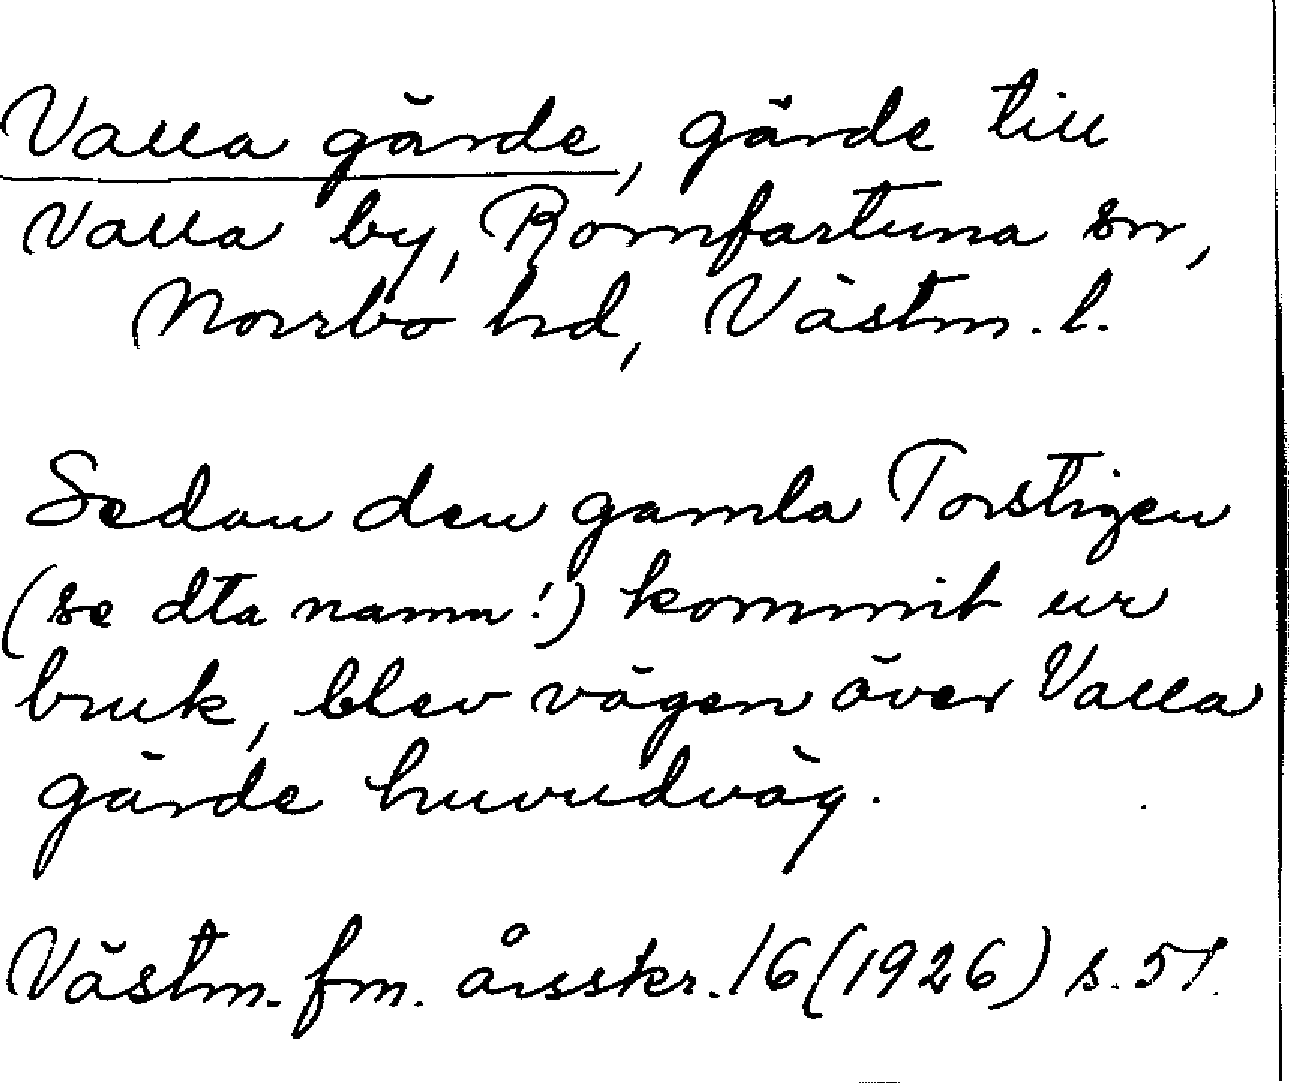 Valla gärde, gärde till
Valla by, Romfartuna sn,
Norrbo hd, Västm. l.
Sedan den gamla Torstigen
(se dta namn!) kommit ur
bruk, blev vägen över Valla
gärde huvudväg.
Västm. fm. årsskr. 16 (1926) s. 51.